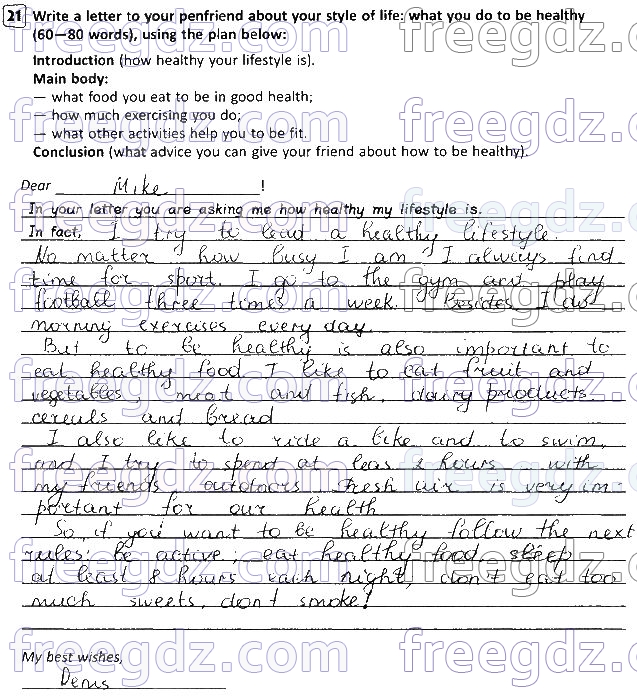 21 Write a letter to your penfriend about your style of life: what you do to be healthy
(60—80 words), using the plan below:
Introduction (how healthy your lifestyle is).
Main body:
— what food you eat to be in good health;
— how much exercising you do;
— what other activities help you to be fit.
Conclusion (what advice you can give your friend about how to be healthy).
Dear Mike !
In your letter you are asking me how healthy my lifestyle is.
In fact, I try to lead a healthy lifestyle.
No matter how busy I am I always find
time for sport. I go to the gym and play
football three times a week. Besides I do
morning exercises every day.
But to be healthy is also important to
eat healthy food. I like to eat fruit and
vegetables, meat and fish, dairy products
cereals and bread
I also like to ride a bike and to swim,
and I try to spend at leas 2 hours with
my friends outdoors. Fresh air is very im
portant for our health
So, if you want to be healthy follow the next
rules: be active, eat healthy food, sleep
at least 8 hours each night, don't eat too
much sweets, don't smoke!
My best wishes,
Denis
freegdz.com